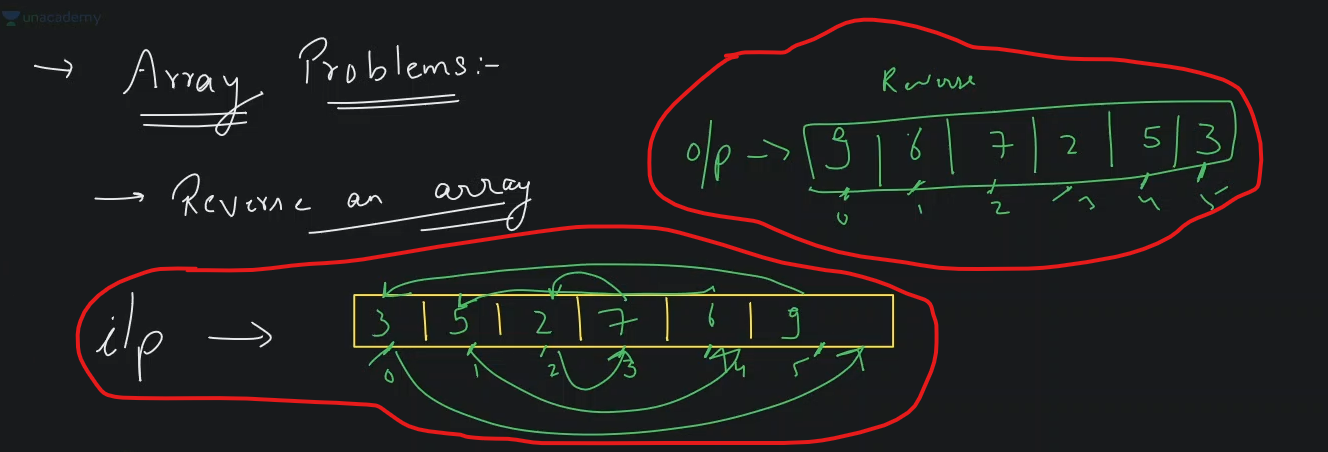 unacademy
→ Array Problems:-
→ Reverse an array
Reverse
o/p → 9 | 6 | 7 | 2 | 5 | 3
0 1 2 3 4 5
i/p → 3 | 5 | 2 | 7 | 6 | 9
0 1 2 3 4 5